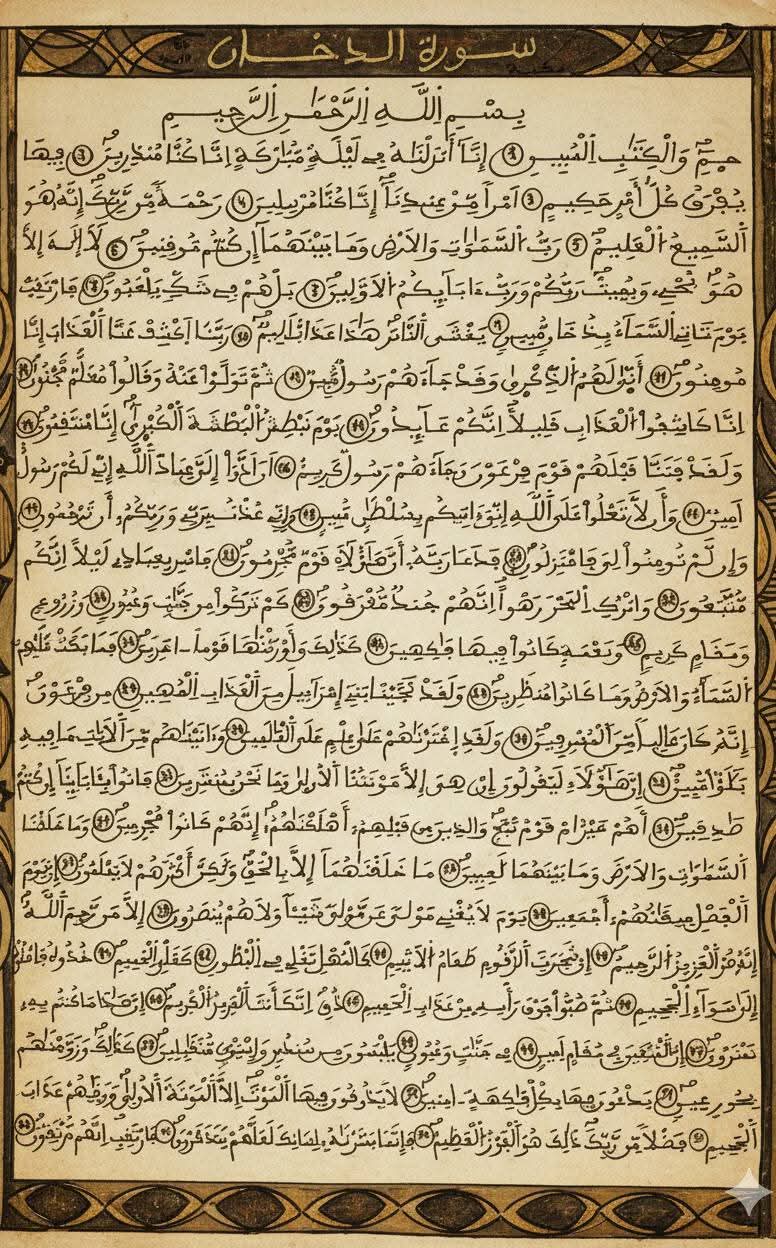 سورة الدخان
مكية
بسم الله الرحمن الرحيم
حم والكتب المبين إنا أنزلنه في ليلة مبركة انا كنا منذرين فيها
يفرق كل أمر حكيم امرا من عندنا إنا كنا مرسلين رحمة من ربك إنه هو
السميع العليم رب السموت والارض وما بينهما إن كنتم موقنين لا إله إلا
هو يحيي ويميت ربكم ورب ءابايكم الاولين بل هم في شك يلعبون فارتقب
يوم تاتي السماء بدخان مبين يغشى الناس هذا عذاب اليم ربنا اكشف عنا العذاب إنا
مومنون أنى لهم الذكرى وقد جاءهم رسول مبين ثم تولوا عنه وقالوا معلم مجنون
انا كاشفوا العذاب قليلا انكم عايدون يوم نبطش البطشة الكبرى إنا منتقمون
ولقد فتنا قبلهم قوم فرعون وجاءهم رسول كريم أن ادوا إلي عباد الله إني لكم رسول
امين وأن لا تعلوا على الله إني ءاتيكم بسلطن مبين وإني عذت بربي وربكم أن ترجمون
وإن لم تومنوا لي فاعتزلون فدعا ربه أن هؤلاء قوم مجرمون فاسر بعبادي ليلا انكم
متبعون واترك البحر رهوا انهم جند مغرقون كم تركوا من جنت وعيون وزروع
ومقام كريم ونعمة كانوا فيها فاكهين كذلك وأورثنها قوما اخرين فما بكت عليهم
السماء والارض وما كانوا منظرين ولقد نجينا بني إسراييل من العذاب المهين من فرعون
إنه كان عاليا من المسرفين ولقد إخترنهم على علم على العلمين وءاتينهم من الايت ما فيه
بلؤا مبين إن هؤلاء ليقولون إن هي إلا موتتنا الأولى وما نحن بمنشرين فاتوا بئابائنا إن كنتم
صدقين أهم خير ام قوم تبع والذين من قبلهم أهلكنهم إنهم كانوا مجرمين وما خلقنا
السموت والارض وما بينهما لعبين ما خلقنهما إلا بالحق ولكن أكثرهم لا يعلمون إن يوم
الفصل ميقتهم أجمعين يوم لا يغني مولى عن مولى شيئا ولا هم ينصرون إلا من رحم الله
إنه هو العزيز الرحيم إن شجرت الزقوم طعام الاثيم كالمهل تغلي في البطون كغلي الحميم خذوه فاعتلوه
إلى سواء الجحيم ثم صبوا فوق رأسه من عذاب الحميم ذق إنك أنت العزيز الكريم إن هذا ما كنتم به
تمترون إن المتقين في مقام امين في جنت وعيون يلبسون من سندس وإستبرق متقبلين كذلك وزوجنهم
بحور عين يدعون فيها بكل فاكهة امنين لا يذوقون فيها الموت إلا الموتة الاولى ووقيهم عذاب
الجحيم فضلا من ربك ذلك هو الفوز العظيم فإنما يسرنه بلسانك لعلهم يتذكرون فارتقب انهم مرتقبون